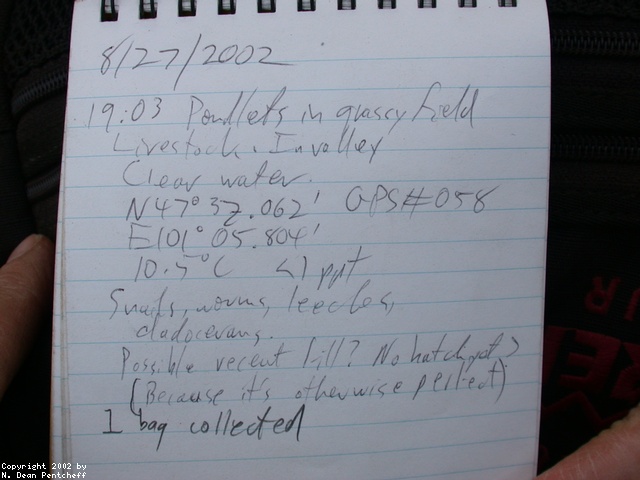 8/27/2002
19:03 Pondlets in grassy field
Livestock. In valley
Clear water.
N47°32.062' GPS#058
E101°05.804'
10.5°C <1 ppt
Snails, worms, leeches,
cladocerans.
Possible recent fill? No hatch yet?
(Because it's otherwise perfect)
1 bag collected
Copyright 2002 by
N. Dean Pentcheff